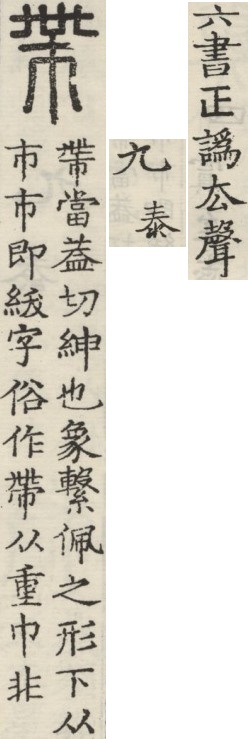 六書正譌厺聲
九
泰
帶
帶當葢切紳也象繫佩之形下从
巿巿即紱字俗作帶从重巾非